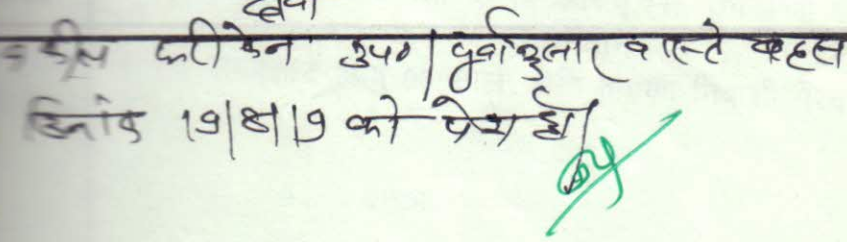 वकील फरीकेन उप० | पूर्वानुसार वास्ते बहस
दिनांक 19/8/19 को पेश हो |